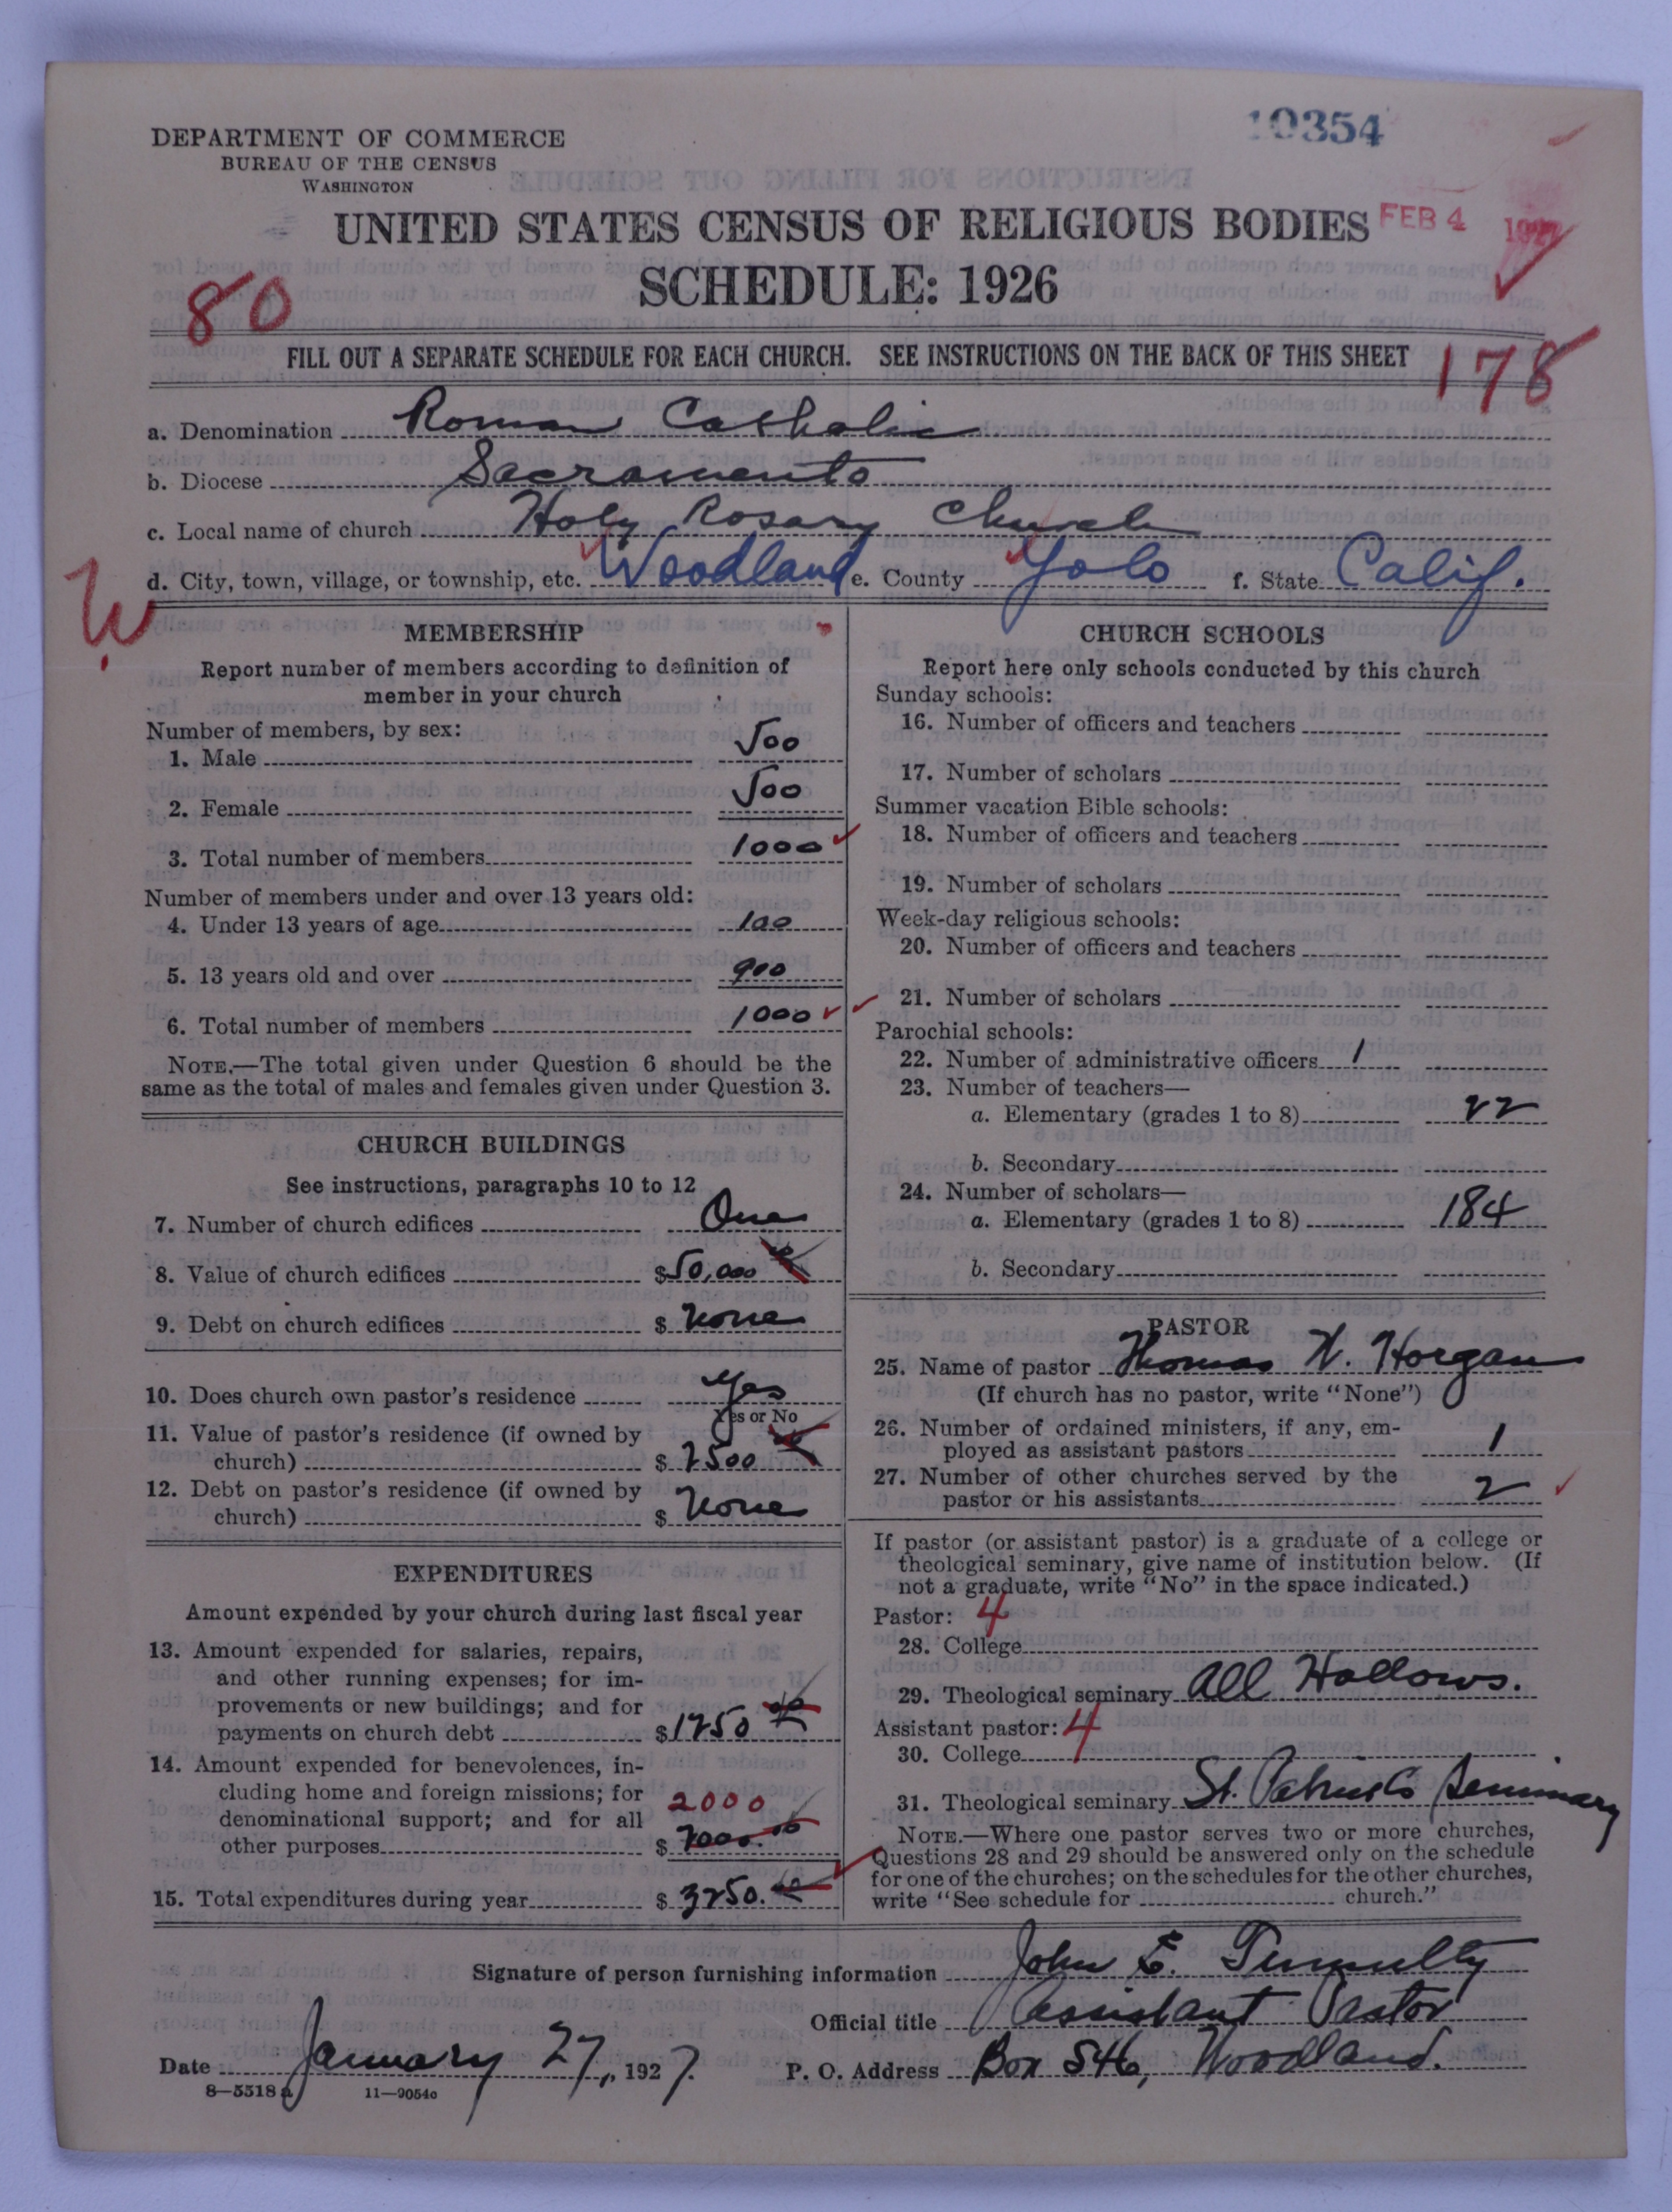 10354
DEPARTMENT OF COMMERCE
BUREAU OF THE CENSUS
WASHINGTON
UNITED STATES CENSUS OF RELIGIOUS BODIES
FEB 4 1927
SCHEDULE: 1926
80
FILL OUT A SEPARATE SCHEDULE FOR EACH CHURCH. SEE INSTRUCTIONS ON THE BACK OF THIS SHEET
178
a. Denomination Roman Catholic
b. Diocese Sacramento
c. Local name of church Holy Rosary Church
d. City, town, village, or township, etc. Woodland e. County Yolo f. State Calif.
W
MEMBERSHIP
Report number of members according to definition of
member in your church
Number of members, by sex:
1. Male 500
2. Female 500
3. Total number of members 1000
Number of members under and over 13 years old:
4. Under 13 years of age 100
5. 13 years old and over 900
6. Total number of members 1000
NOTE.—The total given under Question 6 should be the
same as the total of males and females given under Question 3.
CHURCH BUILDINGS
See instructions, paragraphs 10 to 12
7. Number of church edifices One
8. Value of church edifices $50,000
9. Debt on church edifices $ None
10. Does church own pastor's residence Yes
Yes or No
11. Value of pastor's residence (if owned by
church) $ 7500
12. Debt on pastor's residence (if owned by
church) $ None
EXPENDITURES
Amount expended by your church during last fiscal year
13. Amount expended for salaries, repairs,
and other running expenses; for im-
provements or new buildings; and for
payments on church debt $1250
14. Amount expended for benevolences, in-
cluding home and foreign missions; for
denominational support; and for all 2000
other purposes $ 2000.00
15. Total expenditures during year $ 3250.
CHURCH SCHOOLS
Report here only schools conducted by this church
Sunday schools:
16. Number of officers and teachers
17. Number of scholars
Summer vacation Bible schools:
18. Number of officers and teachers
19. Number of scholars
Week-day religious schools:
20. Number of officers and teachers
21. Number of scholars
Parochial schools:
22. Number of administrative officers 1
23. Number of teachers—
a. Elementary (grades 1 to 8) 22
b. Secondary
24. Number of scholars—
a. Elementary (grades 1 to 8) 184
b. Secondary
PASTOR
25. Name of pastor Thomas W. Horgan
(If church has no pastor, write "None")
26. Number of ordained ministers, if any, em-
ployed as assistant pastors 1
27. Number of other churches served by the
pastor or his assistants 2
If pastor (or assistant pastor) is a graduate of a college or
theological seminary, give name of institution below. (If
not a graduate, write "No" in the space indicated.)
Pastor: 4
28. College
29. Theological seminary All Hallows.
Assistant pastor: 4
30. College
31. Theological seminary St. Patrick's Seminary
NOTE.—Where one pastor serves two or more churches,
Questions 28 and 29 should be answered only on the schedule
for one of the churches; on the schedules for the other churches,
write "See schedule for church."
Signature of person furnishing information John E.
Official title Assistant Pastor
Date January 27, 1927. P. O. Address Box 546, Woodland.
8—5518a 11—9054c